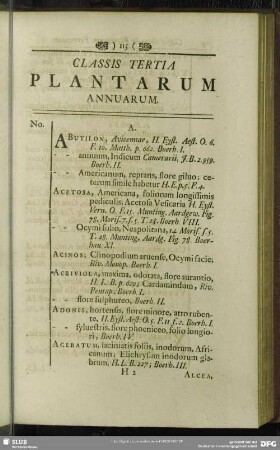 ) 115 (
CLASSIS TERTIA
PLANTARUM
ANNUARUM.
No. A.
ABUTILON, Avicennæ, H. Eyst. Aest. O. 6.
F. 10. Matth. p. 662. Boerh. I.
- - annuum, Indicum Camerarii, J.B. 2. 959.
Boerh. II.
- - Americanum, reptans, flore gilvo; ce-
terum simile habetur H.E.p.5. F.4.
ACETOSA, Americana, foliorum longissimis
pediculis. Acetosa Vesicaria H. Eyst.
Vern. O. F.15. Munting. Aardgew. Fig.
78. Moris. 7. f. 5. T. 28. Boerh. VIII.
- - Ocymi folio, Neapolitana, 14 Moris. f. 5.
T. 28. Munting. Aardg. Fig. 78. Boer-
hav. XI.
ACINOS; Clinopodium arvense, Ocymi facie;
Riv. Monop. Boerh. I.
ACRIVIOLA, maxima, odorata, flore aurantio,
H. L. B. p. 629; Cardamindum, Riv.
Pentap. Boerh. I.
- - flore sulphureo, Boerh. II.
ADONIS, hortensis, flore minore, atro ruben-
te, H. Eyst. Aest O. 5. F. 11 f. 2. Boerh. I.
- - sylvestris, flore phoeniceo, folio longio-
ri; Boerh. IV.
AGERATUM, laciniatis foliis, inodorum, Afri-
canum; Elichrysum inodorum gla-
brum, H. L. B. 227; Boerh. III.
H 2 ALCEA,
SLUB